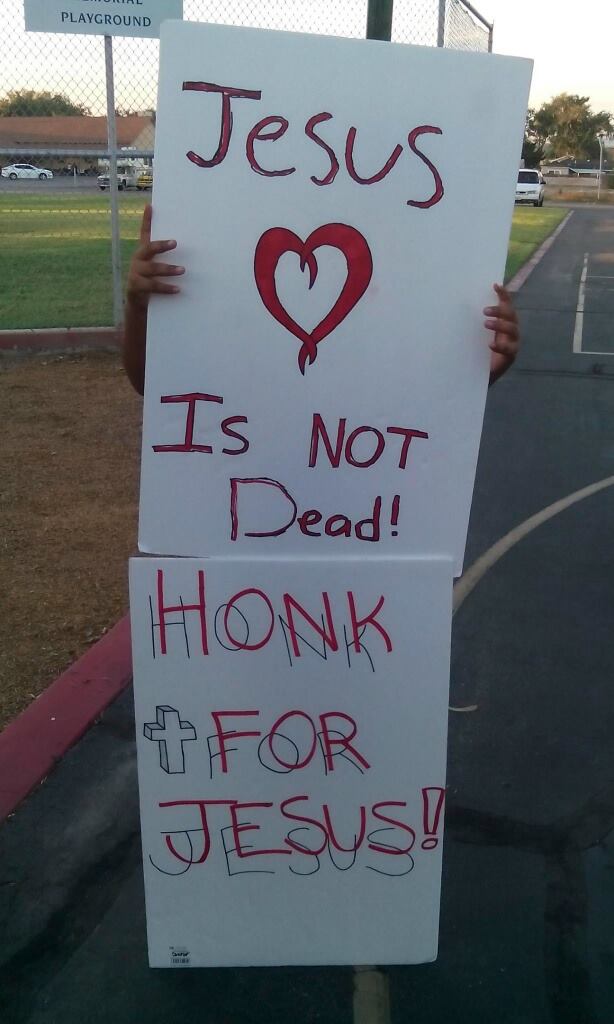 PLAYGROUND
Jesus
Is NOT
Dead!
HONK
FOR
JESUS!